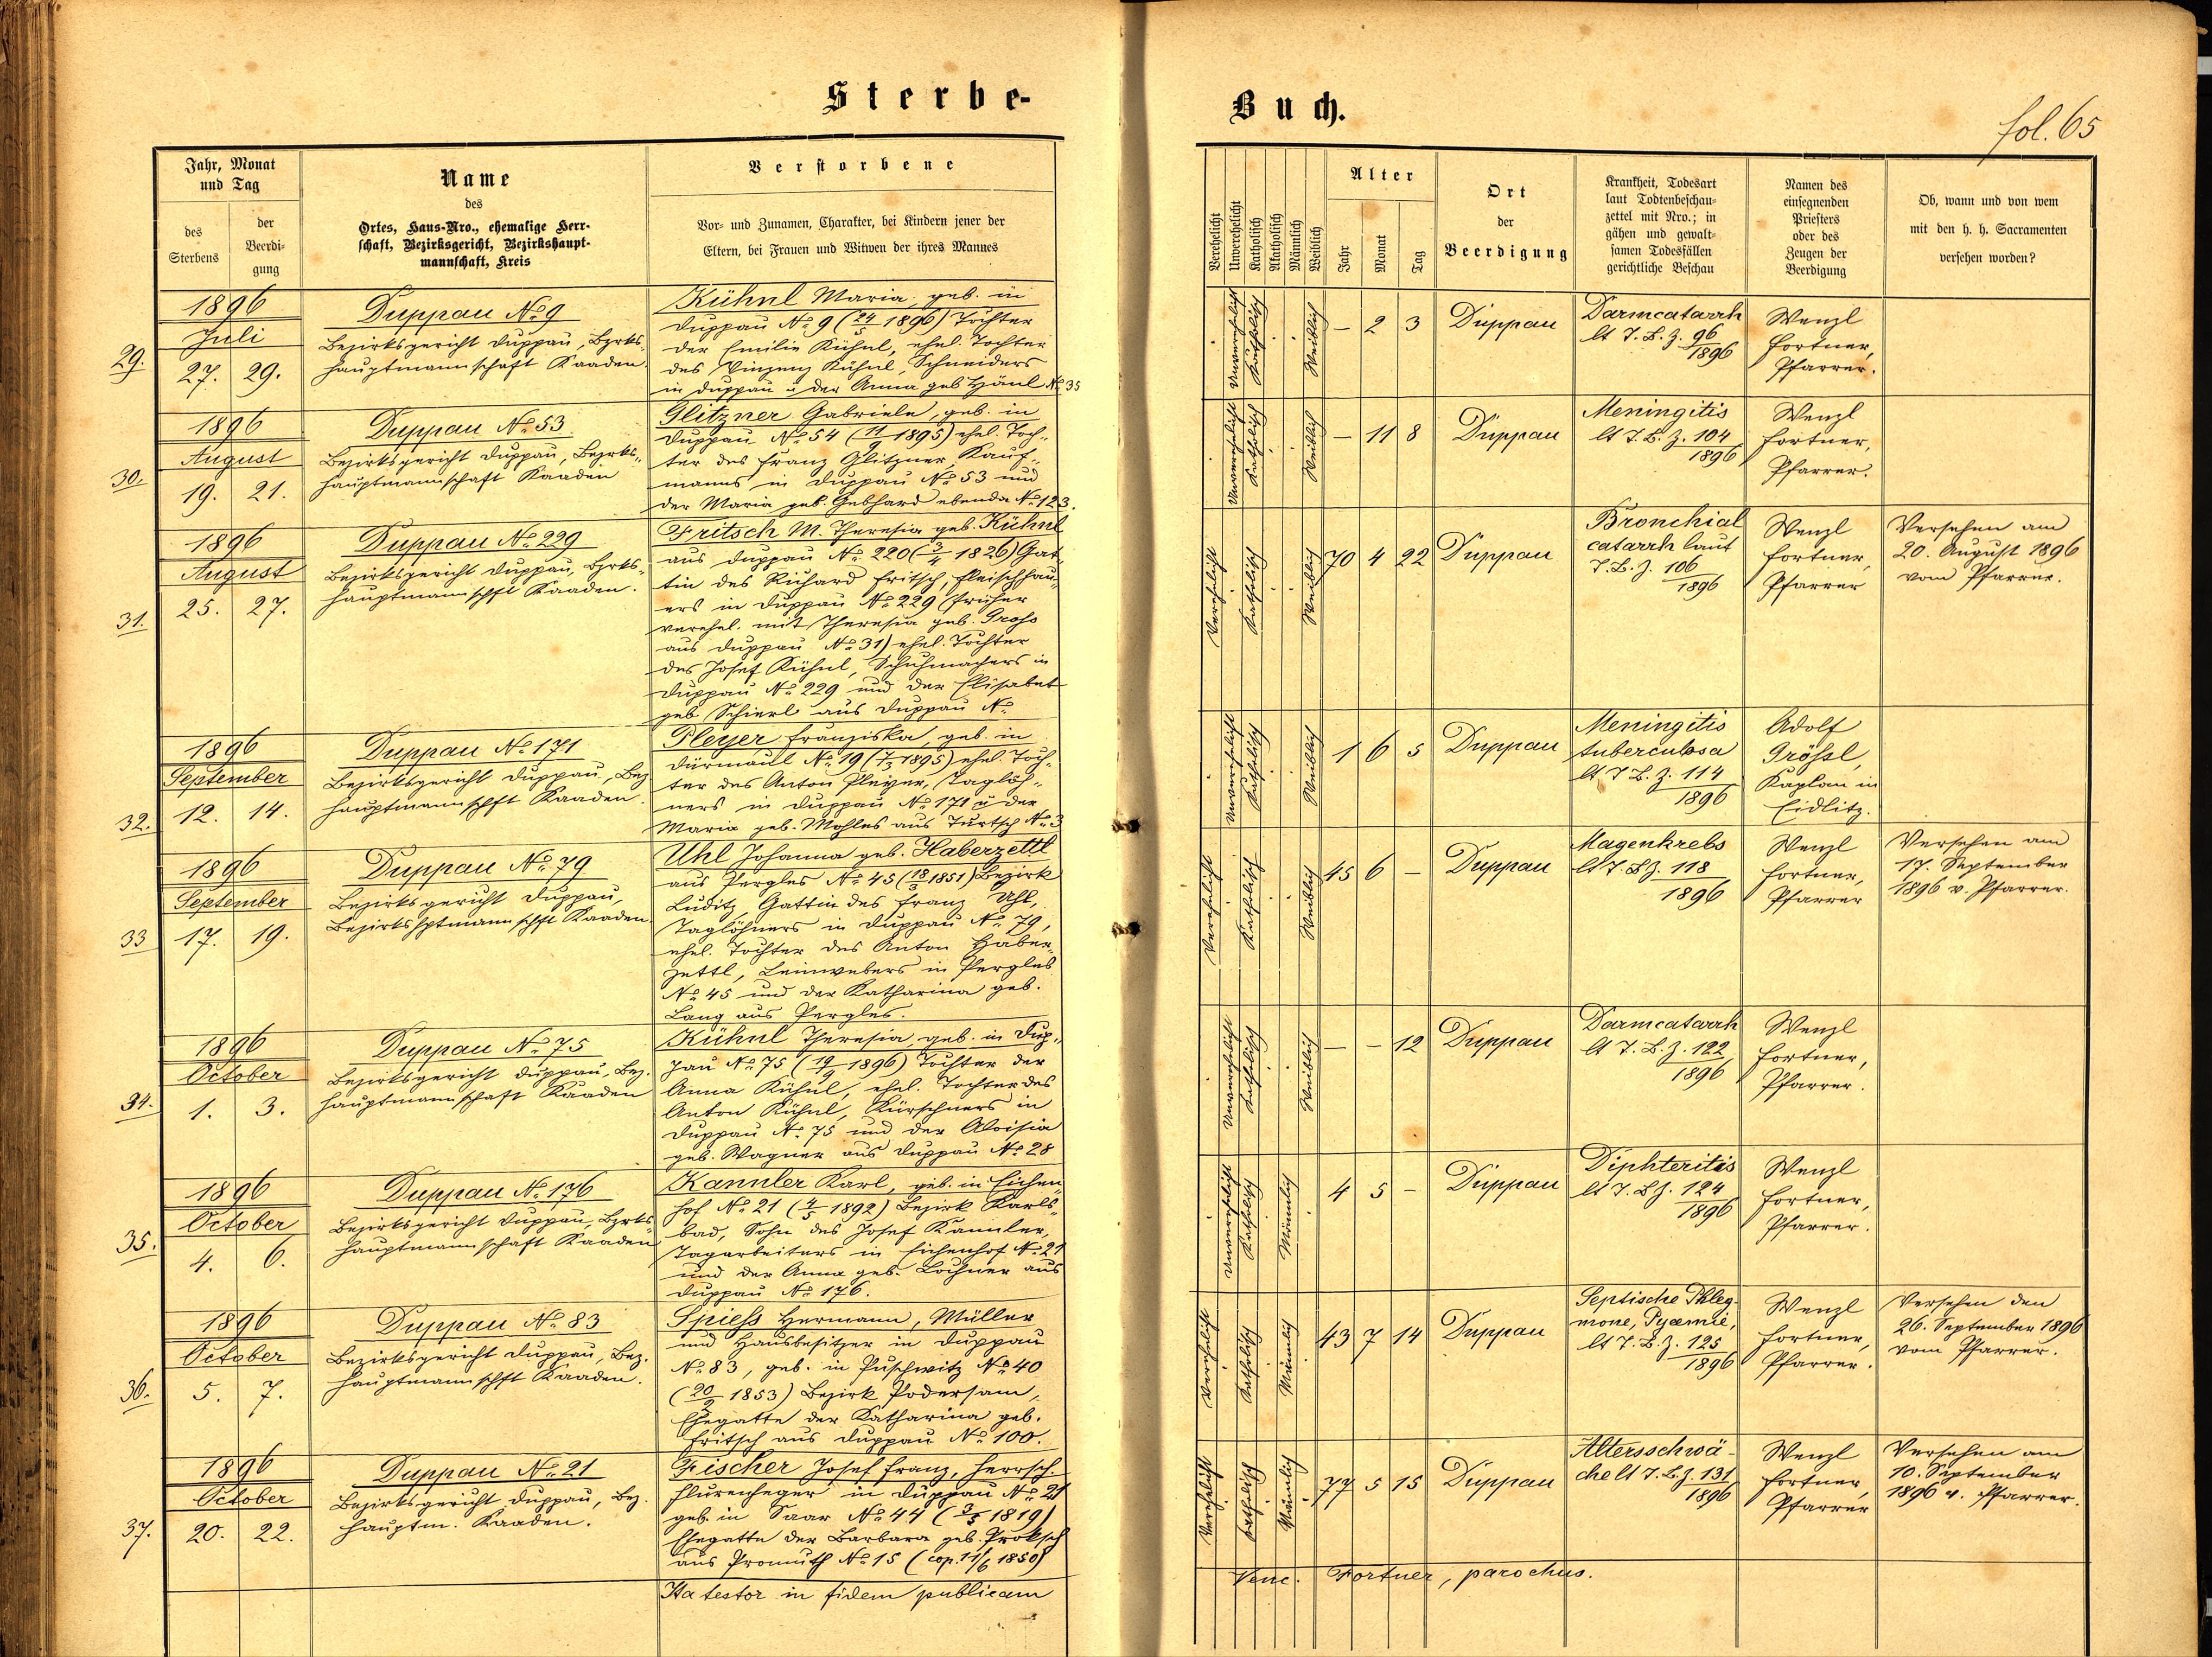 Sterbe-
Jahr, Monat
und Tag
des
Sterbens
der
Beerdi-
gung
Name
des
Ortes, Haus-Nro., ehemalige Herr-
schaft, Bezirksgericht, Bezirkshaupt-
mannschaft, Kreis
Verstorbene
Vor- und Zunamen, Charakter, bei Kindern jener der
Eltern, bei Frauen und Witwen der ihres Mannes
29.
1896
Juli
27. 29.
Duppau No 9
Bezirksgericht Duppau, Bzrks-
hauptmannschaft Kaaden.
Kühnl Maria, geb. in
Duppau No 9 (24/5 1896) Tochter
der Emilie Kühnl, ehel. Tochter
des Vinzenz Kühnl, Schneiders
in Duppau u der Anna geb Hänl No 35
30.
1896
August
19. 21.
Duppau No 53
Bezirksgericht Duppau, Bezrks-
hauptmannschaft Kaaden
Glitzner Gabriele, geb. in
Duppau No 54 (11/9 1895) ehel. Toch-
ter des Franz Glitzner, Kauf-
manns in Duppau No 53 und
der Maria geb. Gebhard ebenda No 123.
31.
1896
August
25. 27.
Duppau No 229
Bezirksgericht Duppau, Bzrks-
hauptmannschft Kaaden.
Fritsch M. Theresia geb. Kühnl
aus Duppau No 220 (3/4 1826) Gat-
tin des Richard Fritsch, Fleischhau-
ers in Duppau No 229 (früher
verehel. mit Theresia geb. Groß
aus Duppau No 31) ehel. Tochter
des Josef Kühnl, Schuhmachers in
Duppau No 229 und der Elisabet
geb. Schierl aus Duppau No
32.
1896
September
12. 14.
Duppau No 171
Bezirksgericht Duppau, Bez.
hauptmannschft Kaaden.
Pleyer Franziska, geb. in
Dürmaul No 19 (7/3 1895) ehel. Toch-
ter des Anton Pleyer, Taglöh-
ners in Duppau No 171 u der
Maria geb. Mohles aus Turtsch No 3
33
1896
September
17. 19.
Duppau No 79
Bezirksgericht Duppau,
Bezirkshptmannschft Kaaden
Uhl Johanna geb. Haberzettl
aus Pergles No 45 (18/3 1851) Bezirk
Luditz, Gattin des Franz Uhl,
Taglöhners in Duppau No 79,
ehel. Tochter des Anton Haber-
zettl, Leinwebers in Pergles
No 45 und der Katharina geb.
Lang aus Pergles.
34.
1896
October
1. 3.
Duppau No 75
Bezirksgericht Duppau, Bez.
hauptmannschaft Kaaden
Kühnl Theresia, geb. in Dup-
pau No 75 (19/9 1896) Tochter der
Anna Kühnl, ehel. Tochter des
Anton Kühnl, Kürschners in
Duppau No 75 und der Aloisia
geb. Wagner aus Duppau No 28
35.
1896
October
4. 6.
Duppau No 176
Bezirksgericht Duppau, Bzrks-
hauptmannschaft Kaaden
Kannler Karl, geb. in Eichen-
hof No 21 (4/5 1892) Bezirk Karls-
bad, Sohn des Josef Kannler,
Tagarbeiters in Eichenhof No 21
und der Anna geb. Lochner aus
Duppau No 176.
36.
1896
October
5. 7.
Duppau No 83
Bezirksgericht Duppau, Bez.
hauptmannschft Kaaden.
Spieß Hermann, Müller
und Hausbesitzer in Duppau
No 83, geb. in Puschwitz No 40
(20/2 1853) Bezirk Podersam,
Ehegatte der Katharina geb.
Fritsch aus Duppau No 100.
37.
1896
October
20. 22.
Duppau No 21
Bezirksgericht Duppau, Bez.
hauptm. Kaaden.
Fischer Josef Franz, herrsch.
Flurenheger in Duppau No 21
geb. in Saar No 44 (3/5 1819)
Ehegatte der Barbara geb. Proksch
aus Promuth No 15 (cop. 11/6 1850)
Ita testor in fidem publicam
Buch.
fol. 65
Verehelicht
Unverehelicht
Katholisch
Akatholisch
Männlich
Weiblich
Alter
Jahr
Monat
Tag
Ort
der
Beerdigung
Krankheit, Todesart
laut Todtenbeschau-
zettel mit Nro.; in
gähen und gewalt-
samen Todesfällen
gerichtliche Beschau
Namen des
einsegnenden
Priesters
oder des
Zeugen der
Beerdigung
Ob, wann und von wem
mit den h. h. Sacramenten
versehen worden?
Unverehelicht
Katholisch
Weiblich
— 2 3
Duppau
Darmcatarrh
lt T. B. Z. 96
1896
Wenzl
Fortner,
Pfarrer.
Unverehelicht
Katholisch
Weiblich
— 11 8
Duppau
Meningitis
lt T. B. Z. 104
1896
Wenzl
Fortner,
Pfarrer.
Verehelicht
Katholisch
Weiblich
70 4 22
Duppau
Bronchial
catarrh laut
T. B. Z. 106
1896
Wenzl
Fortner,
Pfarrer
Versehen am
20. August 1896
vom Pfarrer.
Unverehelicht
Katholisch
Weiblich
1 6 5
Duppau
Meningitis
tuberculosa
lt T B. Z. 114
1896
Adolf
Größl,
Kaplan in
Eidlitz.
Verehelicht
Katholisch
Weiblich
45 6 —
Duppau
Magenkrebs
lt T. B Z. 118
1896
Wenzl
Fortner,
Pfarrer
Versehen am
17. September
1896 v. Pfarrer.
Unverehelicht
Katholisch
Weiblich
— — 12
Duppau
Darmcatarrh
lt T. B. Z. 122
1896
Wenzl
Fortner,
Pfarrer.
Unverehelicht
Katholisch
Männlich
4 5 —
Duppau
Diphteritis
lt T. B Z. 124
1896
Wenzl
Fortner,
Pfarrer.
Verehelicht
Katholisch
Männlich
43 7 14
Duppau
Septische Phleg-
mone, Pyaemie,
lt T. B. Z. 125
1896
Wenzl
Fortner,
Pfarrer.
Versehen den
26. September 1896
vom Pfarrer.
Verehelicht
Katholisch
Männlich
77 5 15
Duppau
Altersschwä-
che lt T. B. Z. 131
1896
Wenzl
Fortner,
Pfarrer
Versehen am
10. September
1896 v. Pfarrer.
Venc. Fortner, parochus.